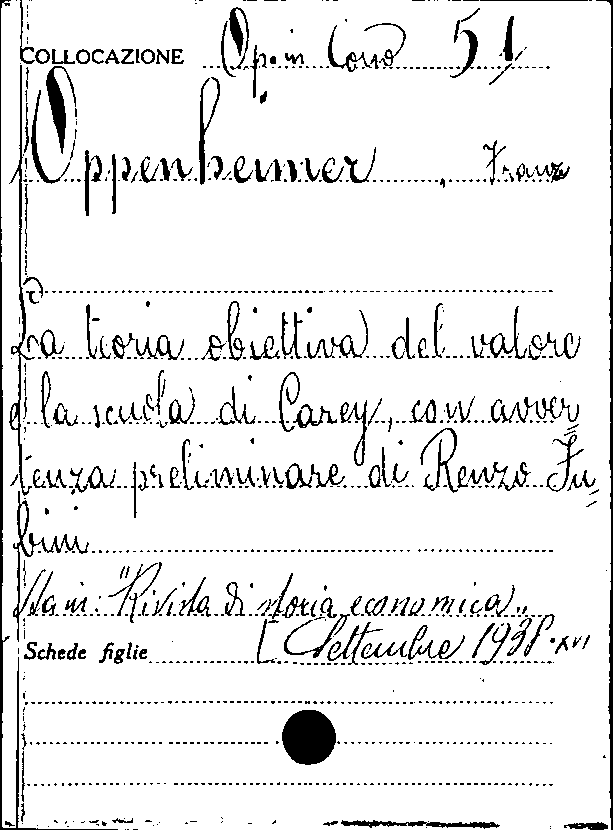 COLLOCAZIONE Op. in Corso 51
Oppenheimer, Franz
La teoria obiettiva del valore
e la scuola di Carey, con avver=
tenza preliminare di Renzo Fu=
bini
Sta in: "Rivista di storia economica„
Schede figlie [Settembre 1938·XVI